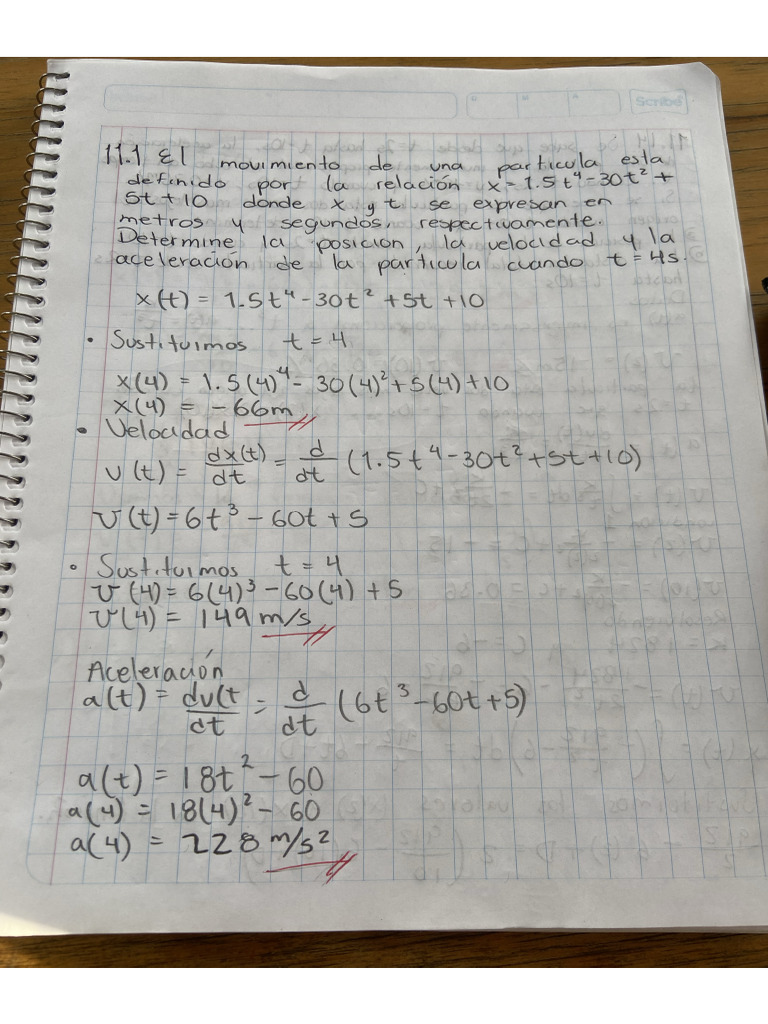 Scribe
11.1 El movimiento de una particula esta
definido por la relación x=1.5t⁴-30t²+
5t+10 donde x y t se expresan en
metros y segundos, respectivamente.
Determine la posicion, la velocidad y la
aceleración de la particula cuando t=4s.
x(t) = 1.5t⁴-30t² +5t +10
• Sustituimos t=4
x(4) = 1.5(4)⁴- 30(4)²+5(4)+10
x(4) = -66m
• Velocidad
v(t) = dx(t)/dt = d/dt (1.5t⁴-30t²+5t+10)
v(t)=6t³-60t+5
• Sustituimos t=4
v(4)=6(4)³-60(4)+5
v(4)= 149 m/s
Aceleración
a(t) = dv(t/dt = d/dt (6t³-60t+5)
a(t) = 18t²-60
a(4) = 18(4)²-60
a(4) = 228 m/s²